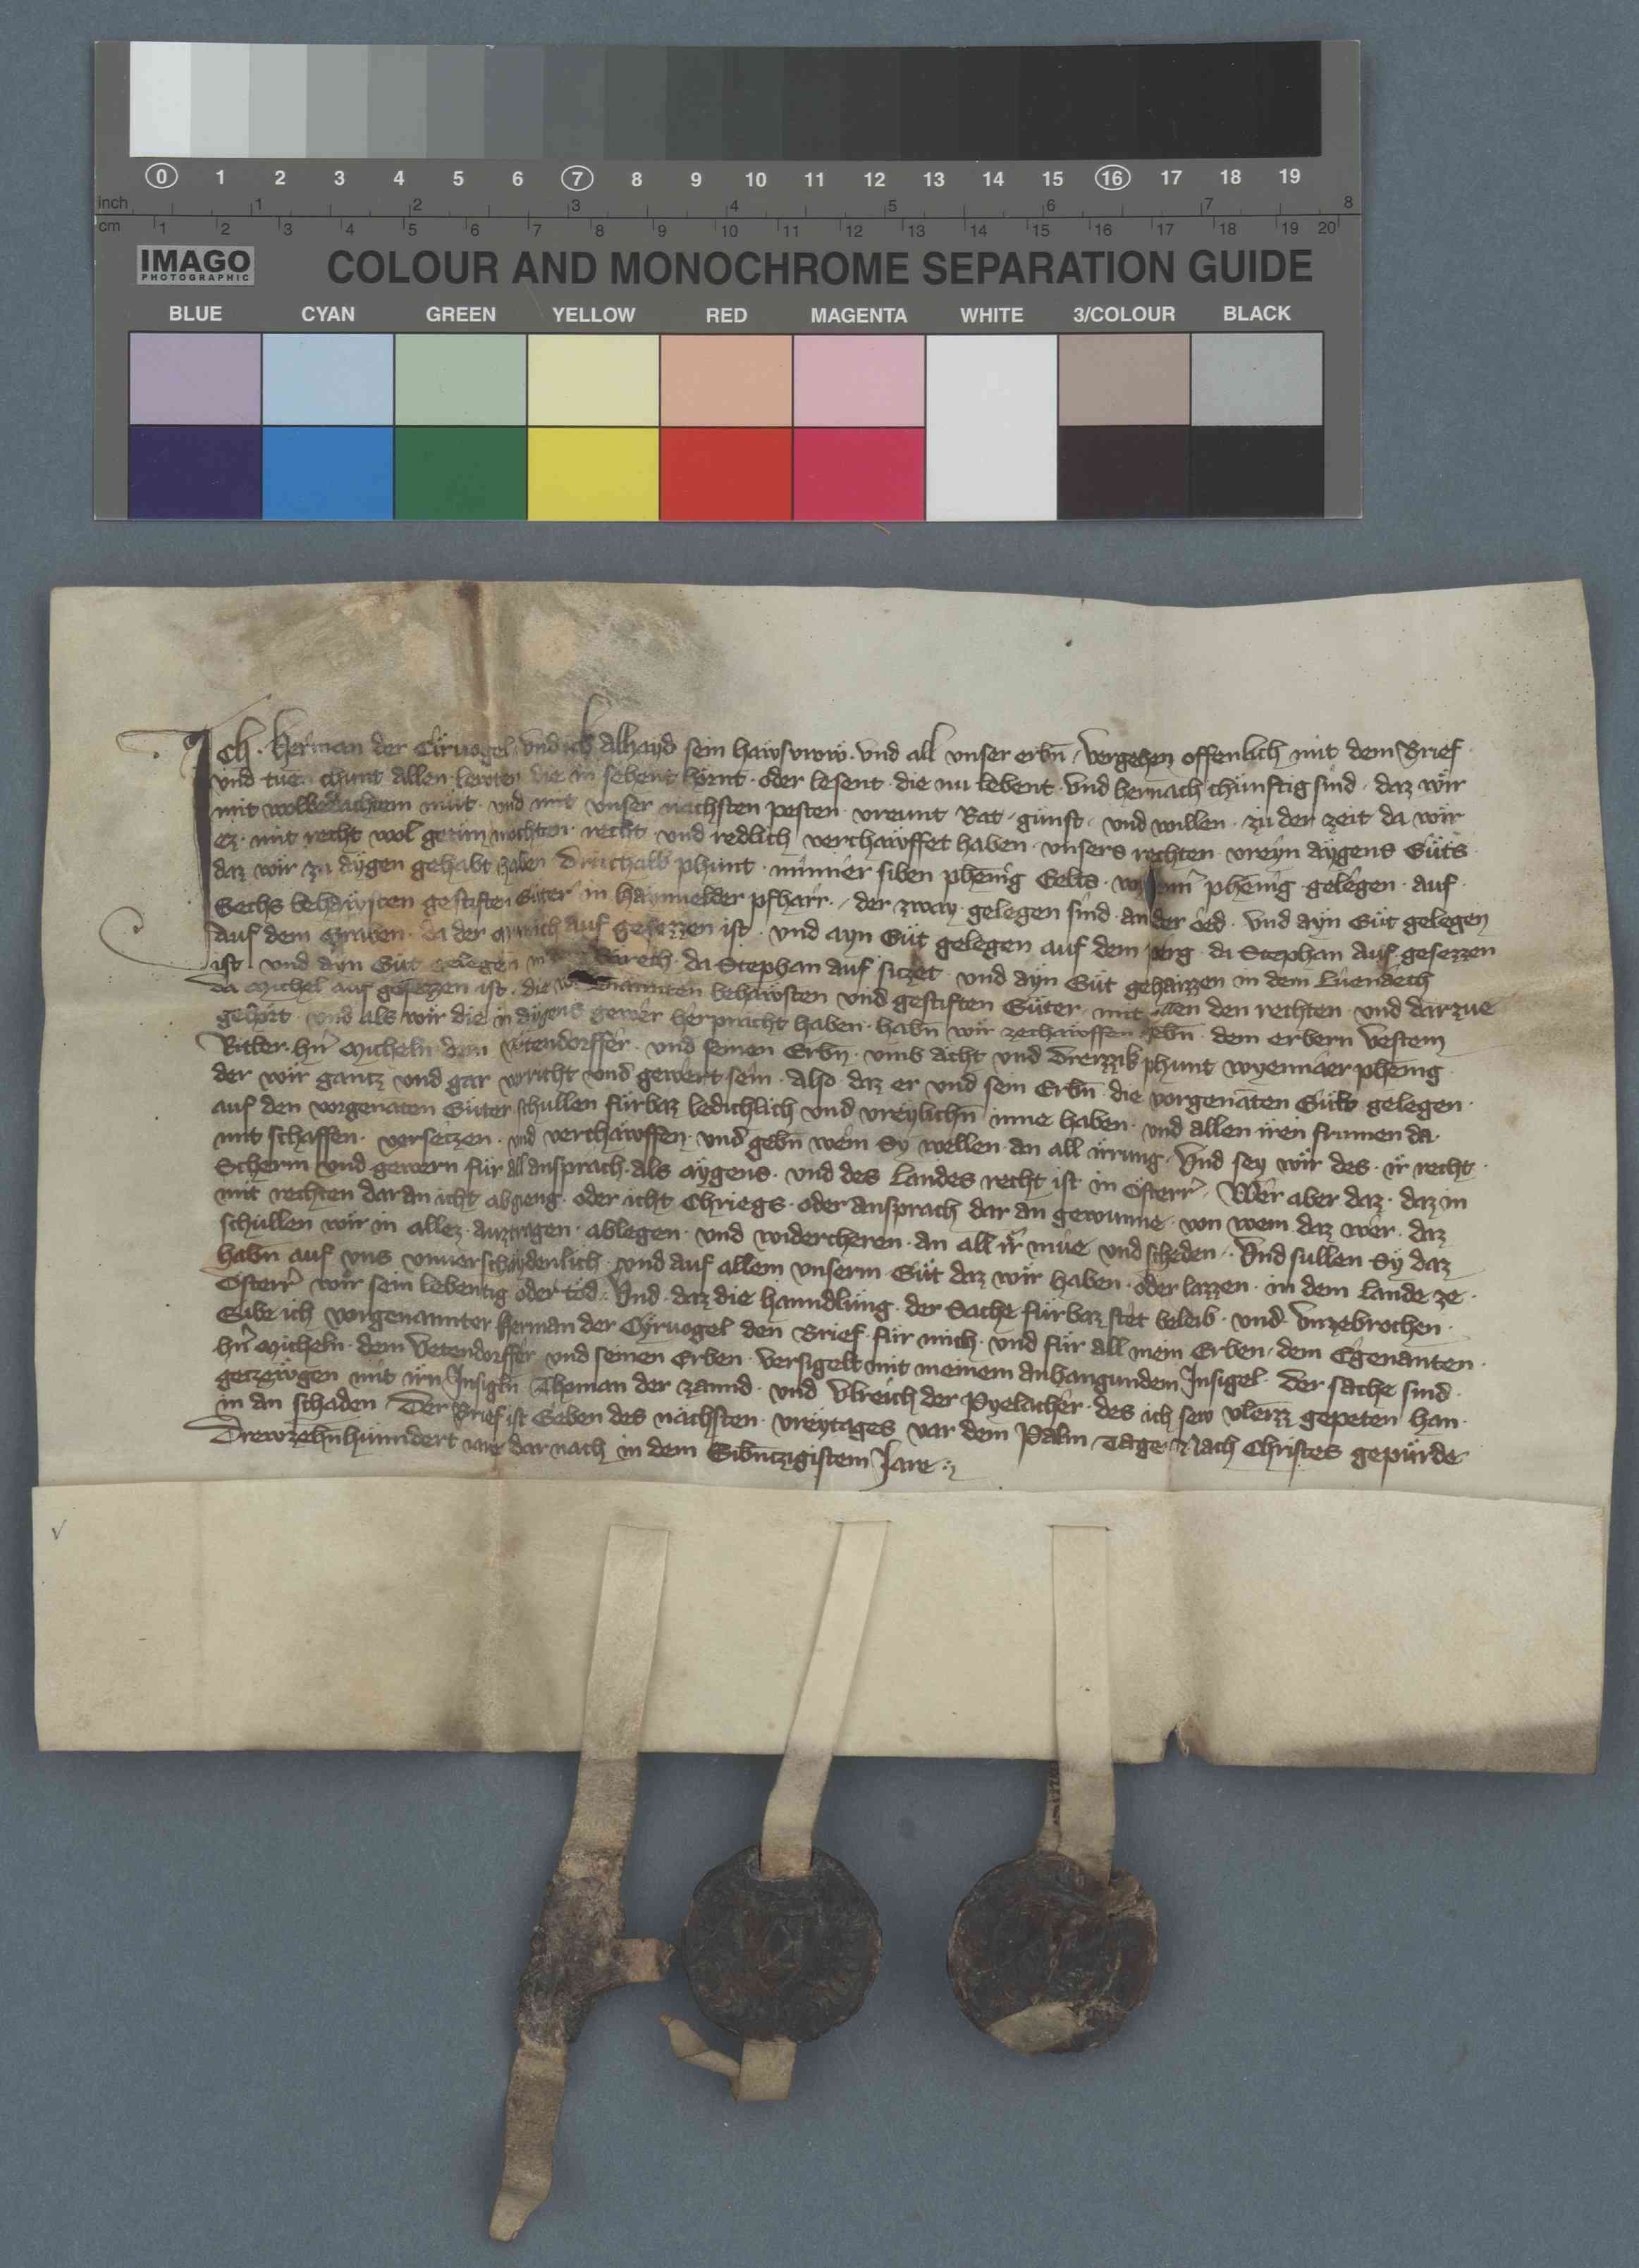 0 1 2 3 4 5 6 7 8 9 10 11 12 13 14 15 16 17 18 19
inch 1 2 3 4 5 6 7 8
cm 1 2 3 4 5 6 7 8 9 10 11 12 13 14 15 16 17 18 19 20
IMAGO
PHOTOGRAPHIC
COLOUR AND MONOCHROME SEPARATION GUIDE
BLUE CYAN GREEN YELLOW RED MAGENTA WHITE 3/COLOUR BLACK
Ich herman der Cirvogel und ich Alhayd sein hawsvrow und all unser erbn vergehen offenlich mit dem Brief
und tuen chunt Allen lewten die in sehent hörnt oder lesent die nu lebent und hernach chünftig sind daz wir
mit wolbedachtem müt und mit unser nächsten pesten vreunt Rat günst und willen zü der zeit da wir
ez mit recht wol getün mochten recht und redlich verchawffet haben unsers rechten vreyn aygens Güts
daz wir zu aygen gehabt haben phunt minner siben phenig Gelts phenig gelegen auf
Sechs behawsten gestiften Güter in pfharr der zway gelegen sind an der öed und ayn Güt gelegen
auf dem Graben da der auf gesezzen ist und ayn Güt gelegen auf dem perg da Stephan auf gesezzen
ist und ayn Güt gelegen da Stephan auf siczet und ayn Güt gehaizzen in dem
da Michel auf gesezzen ist die behawsten und gestiften Güter mit allen den rechten und darzue
gehört und als wir die in aygens gewer herpracht haben habn wir zechawffen gebn dem erbern vestem
Ritter hern Micheln dem vtendorffer und seinen Erbn umb acht und Dreizzik phunt wyennäer phenig
der wir gantz und gar verricht und gewert sein Also daz er und sein Erbn die vorgenäten Gült gelegen
auf den vorgenäten Güter schullen fürbaz ledichlich und vreylichn inne haben und allen iren frumen da
mit schaffen versetzen und verchawffen und gebn wem Sy wellen an all irrung Und sey wir des ir recht
Scherm und gewern für all ansprach als aygens und des Landes recht ist in Österr Wer aber daz daz in
mit rechten daran icht abgieng oder icht Chriegs oder ansprach dar an gewunne von wem daz wer daz
schullen wir in allez auztragen ablegen und widercheren an all ir müe und scheden Und sullen Sy daz
habn auf uns unverschaydenlich und auf allem unserm Güt daz wir haben oder lazzen in dem lande ze
Österr wir sein lebentig oder tod Und daz die hanndlung der Sache fürbaz stet beleib und unzebrochen
Gibe ich vorgenannter herman der Cyrvogel den Brief für mich und für all mein Erben dem Egenanten
hern Micheln dem Vetendorffer und seinen Erben versigelt mit meinem anhangundem Insigel Der sache sind
getzewgen mit irn Insigln Thoman der zannd und Ulreich der Pyelacher des ich sew vleizz gepeten han
in an schaden Der Brief ist Geben des nächsten vreytages vor dem Palm Tage Nach Christes gepürde
Drewzehnhunndert iare dar nach in dem Sibntzigistem Jare